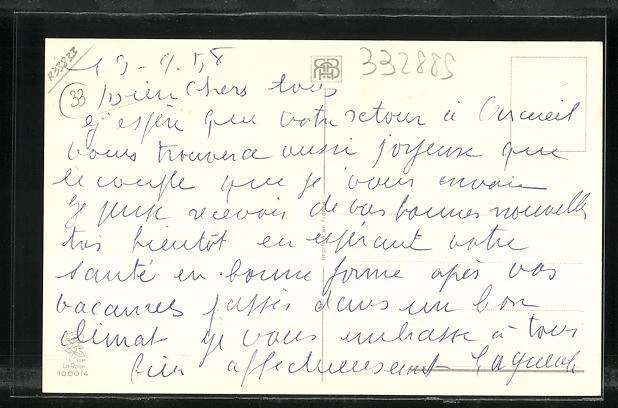 R33823
19-9.58
332885
33
Bien Chers tous
J'espère que votre retour à Arcueil
vous trouvera aussi joyeuse que
le couple que je vous envoie
Je puis recevoir de vos bonnes nouvelles
très bientôt en espérant votre
santé en bonne forme après vos
vacances passés dans un bon
climat je vous embrasse à tous
bien affectueusement
La Rose
10004